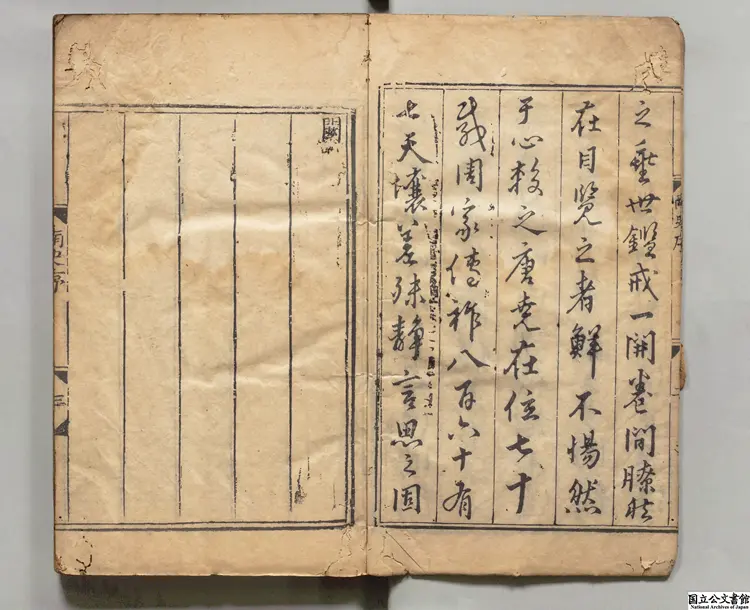 之垂世鑑戒一開卷間瞭然
在目覽之者鮮不惕然
于心較之唐堯在位七十
載周家傳祚八百六十有
七天壤差殊靜言思之固
南史序
三
国立公文書館
National Archives of Japan